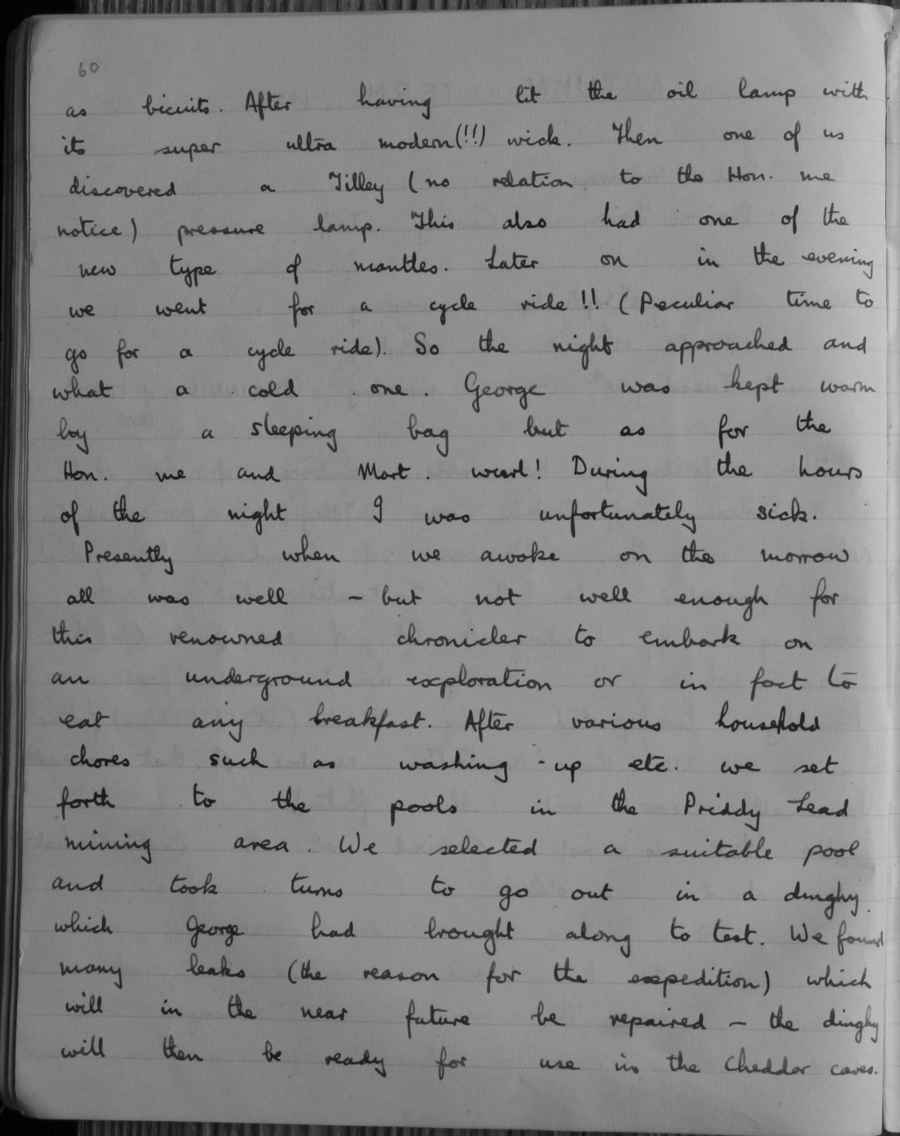 60
as bicuits. After having lit the oil lamp with
its super ultra modern(!!) wick. Then one of us
discovered a Tilley (no relation to the Hon. me
notice) pressure lamp. This also had one of the
new type of mantles. Later on in the evening
we went for a cycle ride!! (Peculiar time to
go for a cycle ride). So the night approached and
what a cold one. George was kept warm
by a sleeping bag but as for the
Hon. me and Mart. well! During the hours
of the night I was unfortunately sick.
Presently when we awoke on the morrow
all was well - but not well enough for
this renowned chronicler to embark on
an underground exploration or in fact to
eat any breakfast. After various household
chores such as washing-up etc. we set
forth to the pools in the Priddy Lead
mining area. We selected a suitable pool
and took turns to go out in a dinghy.
which George had brought along to test. We found
many leaks (the reason for the expedition) which
will in the near future be repaired - the dinghy
will then be ready for use in the Cheddar caves.